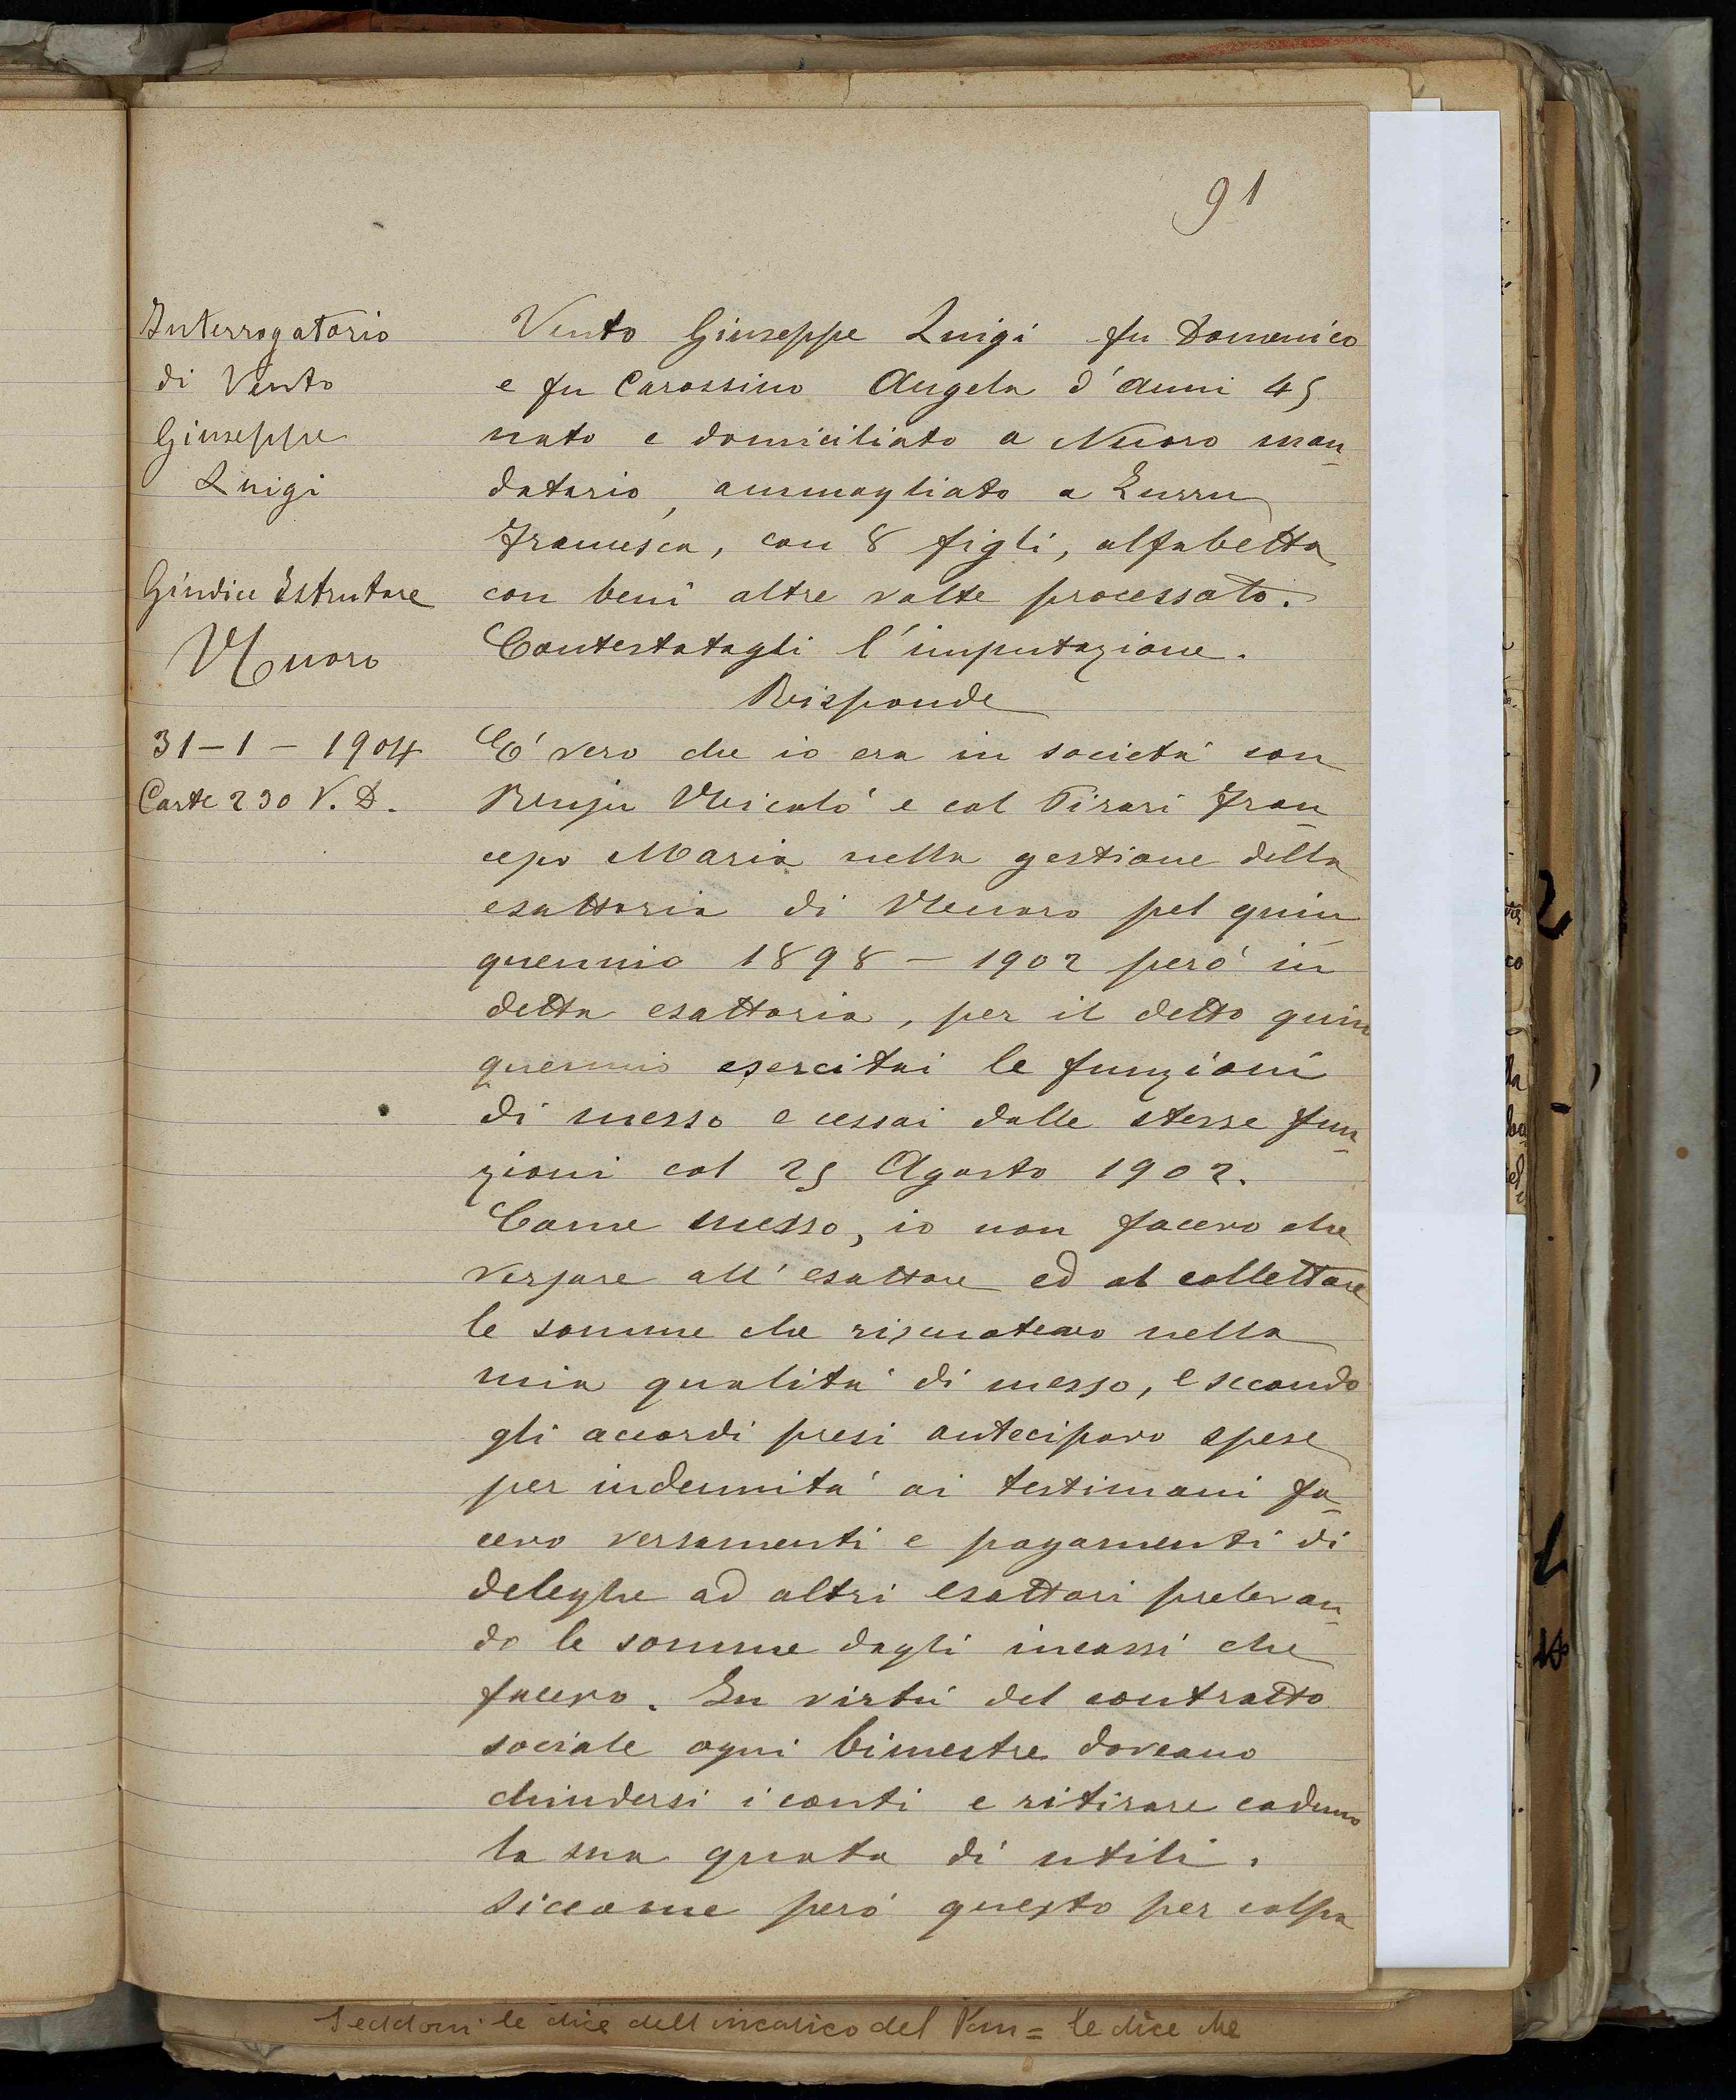 91
Interrogatorio
di Vento
Giuseppe
Luigi
Giudice Istrutore
Nuoro
31-1-1904
Carte 230 V. D.
Vento Giuseppe Luigi fu Domenico
e fu Carossino Angela d'anni 45
nato e domiciliato a Nuoro man
datario, ammogliato a Zurru
Francesca, con 8 figli, alfabetta
con beni altre volte processato.
Contestatagli l'imputazione.
Risponde
E' vero che io era in società con
Renju Nicolò e col Pirari Fran
cepo Maria nella gestione della
esattoria di Nuoro pel quin
quennio 1898-1902 però in
detta esattoria, per il detto quin
quennio esercitai le funzioni
di messo e cessai dalle stesse fun
zioni col 25 Agosto 1902.
Come messo, io non facevo che
versare all'esattore ed al collettore
le somme che riscuotevo nella
mia qualità di messo, e secondo
gli accordi presi antecipavo spese
per indennità ai testimoni fa
cevo versamenti e pagamenti di
deleghe ad altri esattori prelevan
do le somme dagli incassi che
facevo. In virtù del contratto
sociale ogni bimestre doveano
chiudersi i conti e ritirare caduno
la sua quota di utili.
Siccome però questo per colpa
le dice dell'incarico del = le dice che